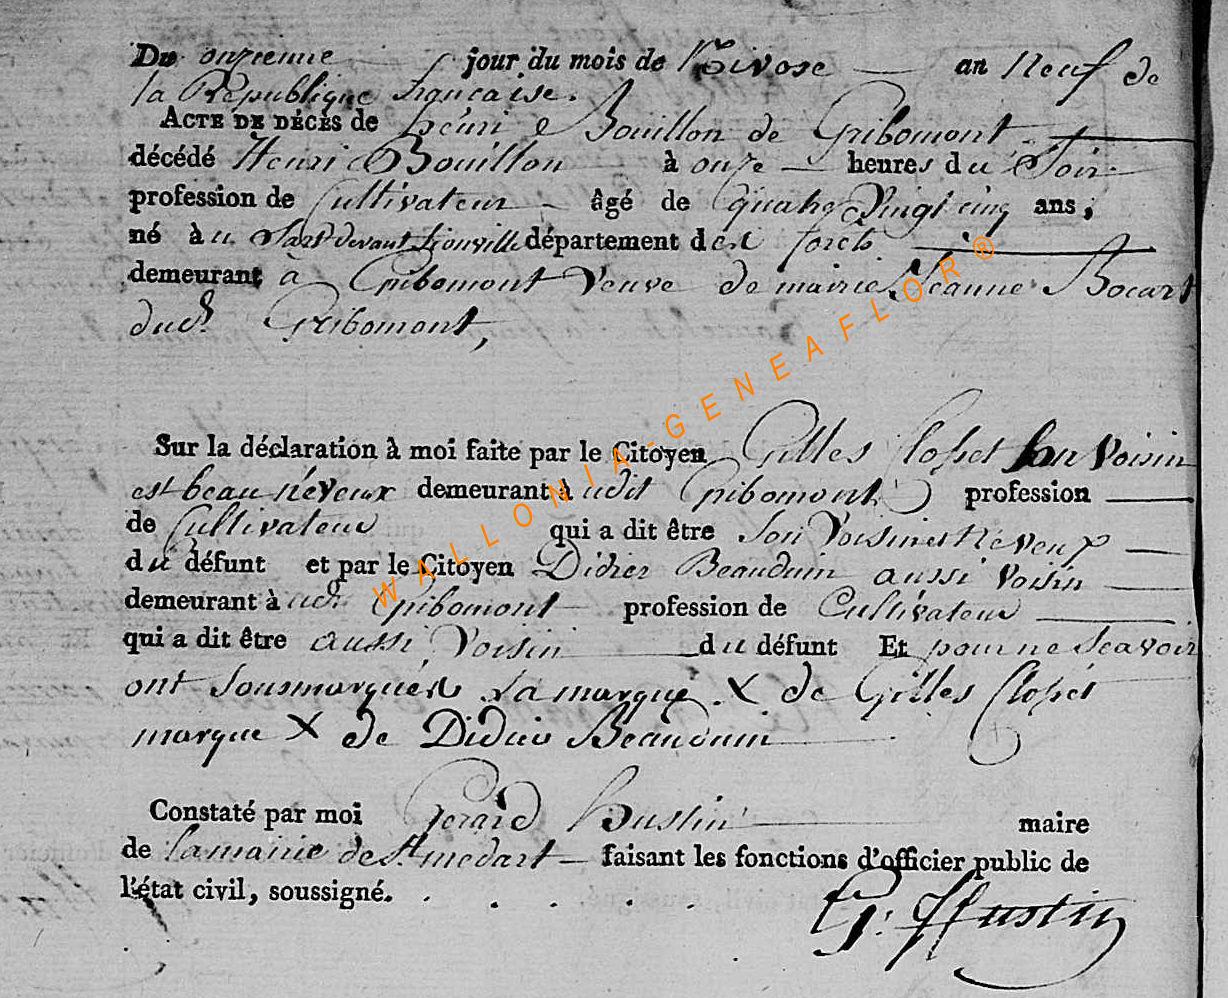 Du onzieme jour du mois de Nivose an Neuf de
la République française.
ACTE DE DÉCÈS de henri Bouillon de Gribomont
décédé Henri Bouillon à onze heures du Soir
profession de Cultivateur âgé de quatre Vingt cinq ans,
né à u Sart devant département des forets
demeurant à Gribomont Veuve de marie Jeanne Bocart
dud. Gribomont,
Sur la déclaration à moi faite par le Citoyen Gilles Closset Son Voisin
est beau néveux demeurant à udit Gribomont profession
de Cultivateur qui a dit être Son Voisin et Neveux
du défunt et par le Citoyen Didier Beauduin aussi Voisin
demeurant à Gribomont profession de Cultivateur
qui a dit être aussi Voisin du défunt Et pour ne Scavoir
ont Sousmarqués La marque X de Gilles Closset
marque X de Didier Beauduin
Constaté par moi Gerard hustin maire
de la mairie de St medart faisant les fonctions d'officier public de
l'état civil, soussigné.
G: Hustin
WALLONIA-GENEAFLOR®